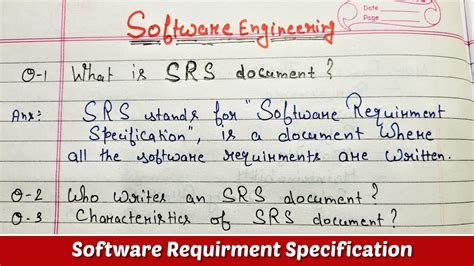 Date
Page
Software Engineering
Q-1 What is SRS document?
Ans: SRS stands for "Software Requirment
Specification", is a document where
all the software requirments are written.
Q-2 Who writes an SRS document?
Q-3 Characteristics of SRS document?
Software Requirment Specification